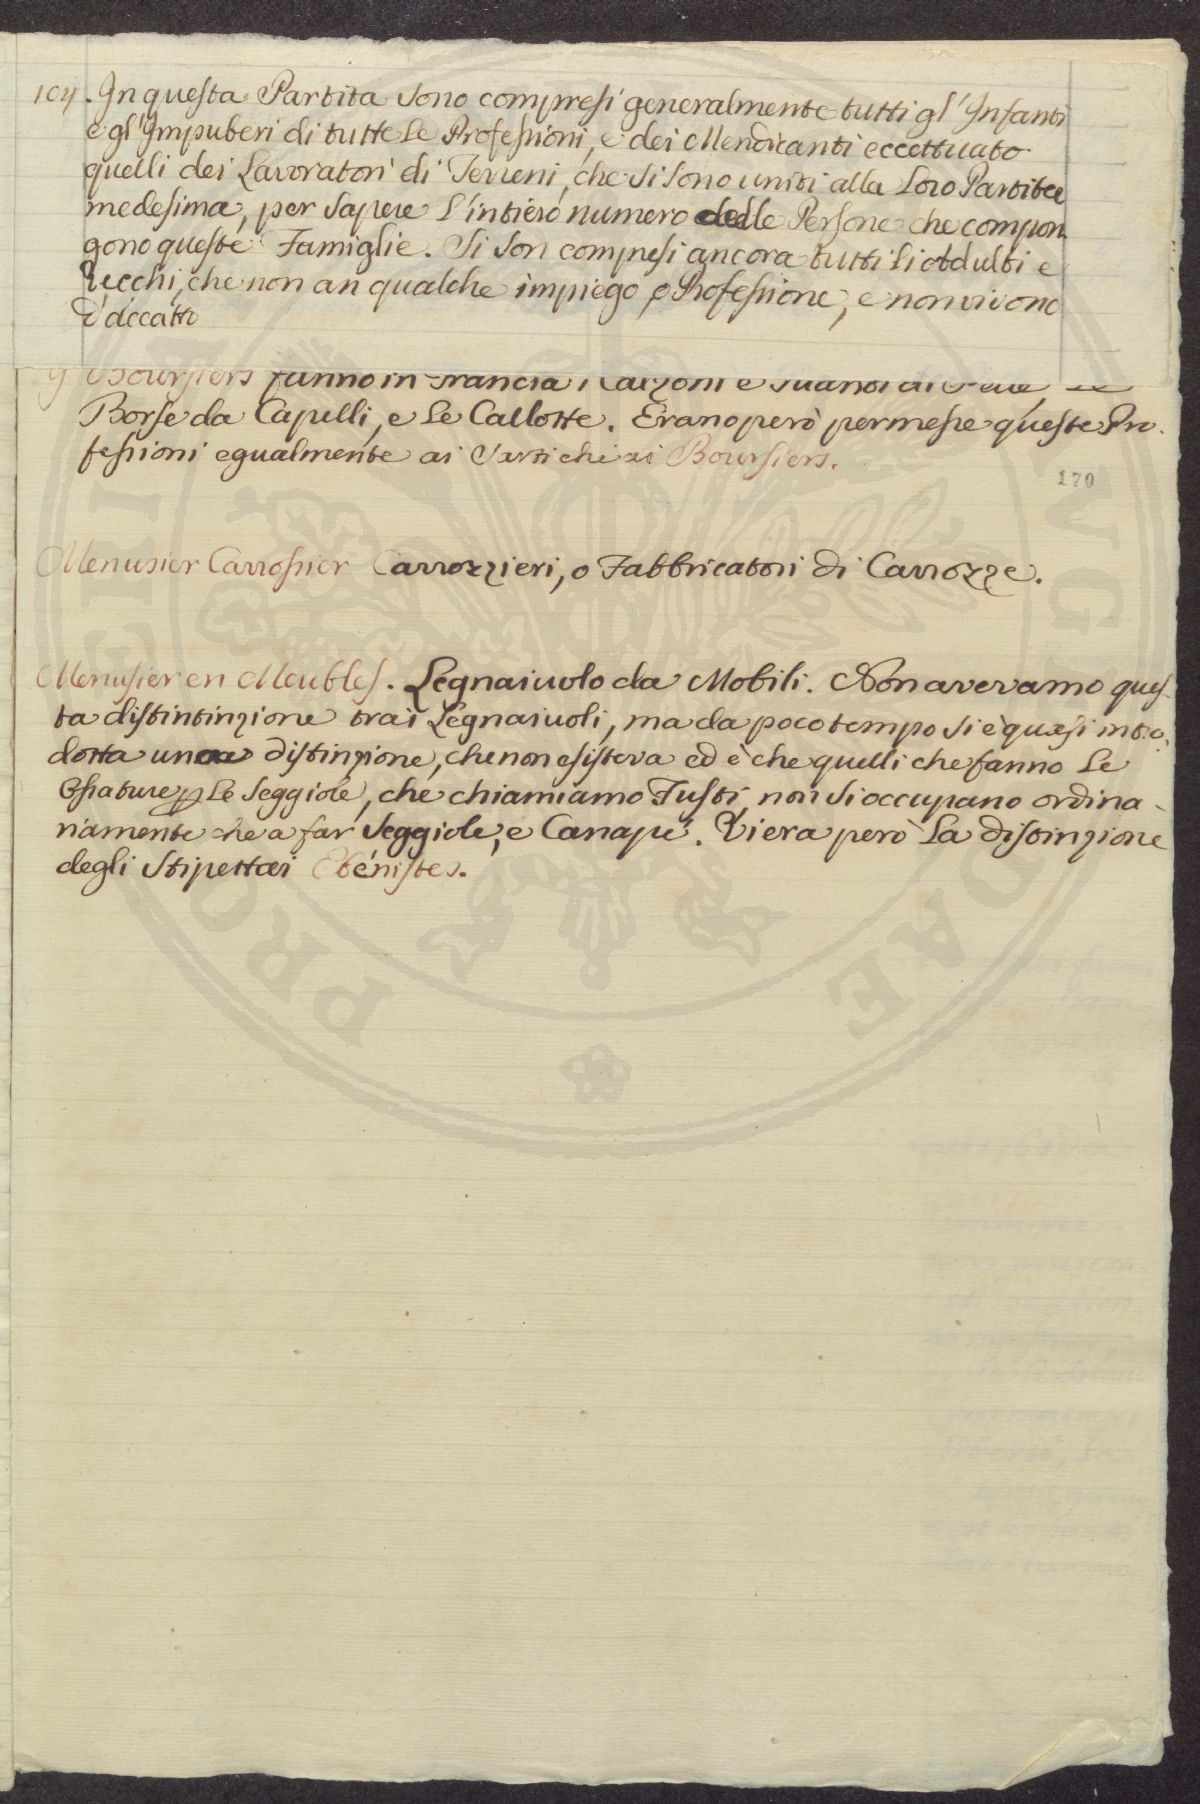 104. In questa Partita sono compresi generalmente tutti gl'Infanti
e gl'Impuberi di tutte le Professioni, e dei Mendicanti eccettuato
quelli dei Lavoratori di Terreni, che si sono uniti alla loro Partita
medesima, per sapere l'intiero numero delle Persone che compon
gono queste Famiglie. Si son compresi ancora tutti li Adulti e
Vecchi, che non an qualche impiego o Professione, e non vivono
d'accatto
Boursiers fanno in Francia i Calzoni e Guanti di Pelle, Le
Borse da Capelli, e le Callotte. Erano però permesse queste Pro.
fessioni egualmente ai Sarti che ai Boursiers.
170
Menusier Carrossier Carrozzieri, o Fabbricatori di Carrozze.
Menusier en Meubles. Legnaiuolo da Mobili. Non avevamo ques-
ta distintinzione trai Legnaiuoli, ma da poco tempo si è quasi intro.
dotta una distinzione, che non esisteva ed è che quelli che fanno le
Ossature p le Seggiole, che chiamiamo Fusti, non si occupano ordina-
riamente che a far Seggiole, e Canapè. Vi era però la distinzione
degli Stipettai Ebénistes.
PRO
DAE